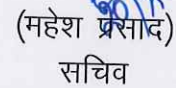 (महेश प्रसाद)
सचिव